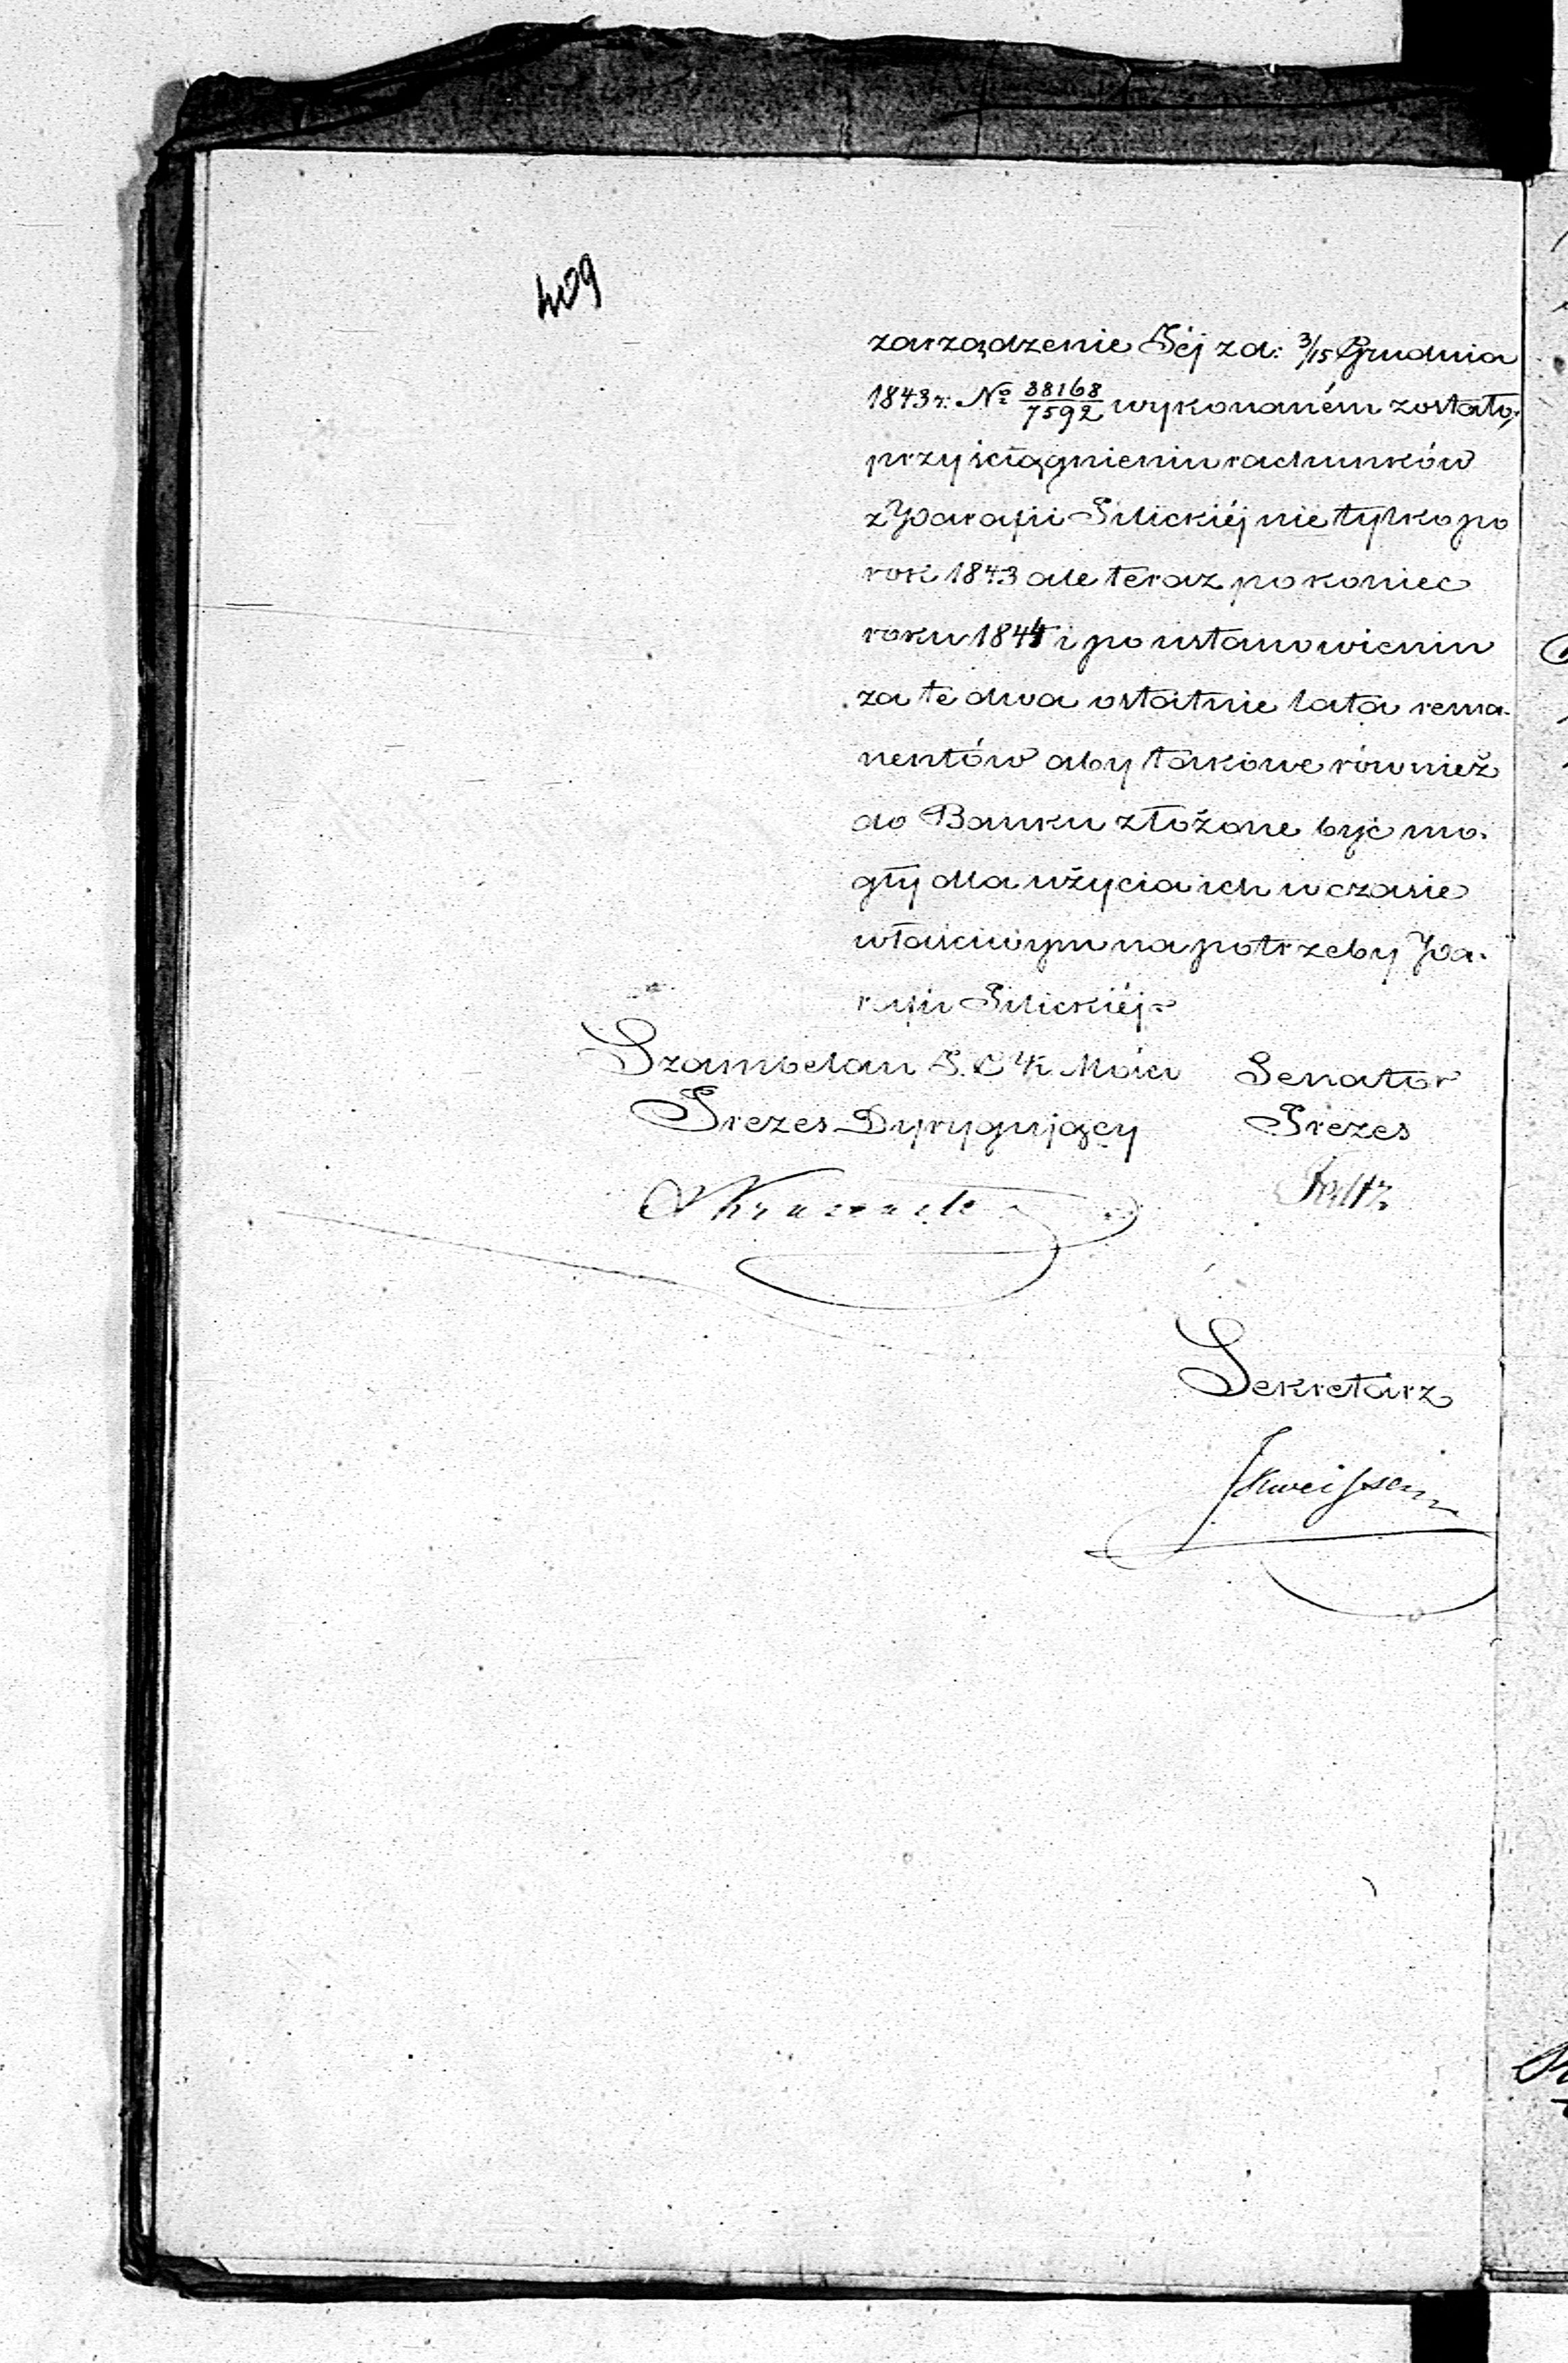 409
zarządzenie Jéj z d: 3/15 Grudnia
1843 r. No 38168/7592 wykonaném zostało,
przy ściągnieniu rachunków
z Parafii Pilickiéj nie tylko po
rok 1843 ale teraz po koniec
roku 1844 i po ustanowieniu
za te dwa ostatnie lata rema-
nentów aby takowe również
do Banku złożone być mo-
gły dla użycia ich w czasie
właściwym na potrzeby Pa-
rafii Pilickiéj.
Szambelan J. C. K. Mości
Prezes Dyrygujący
Senator
Prezes
Sekretarz